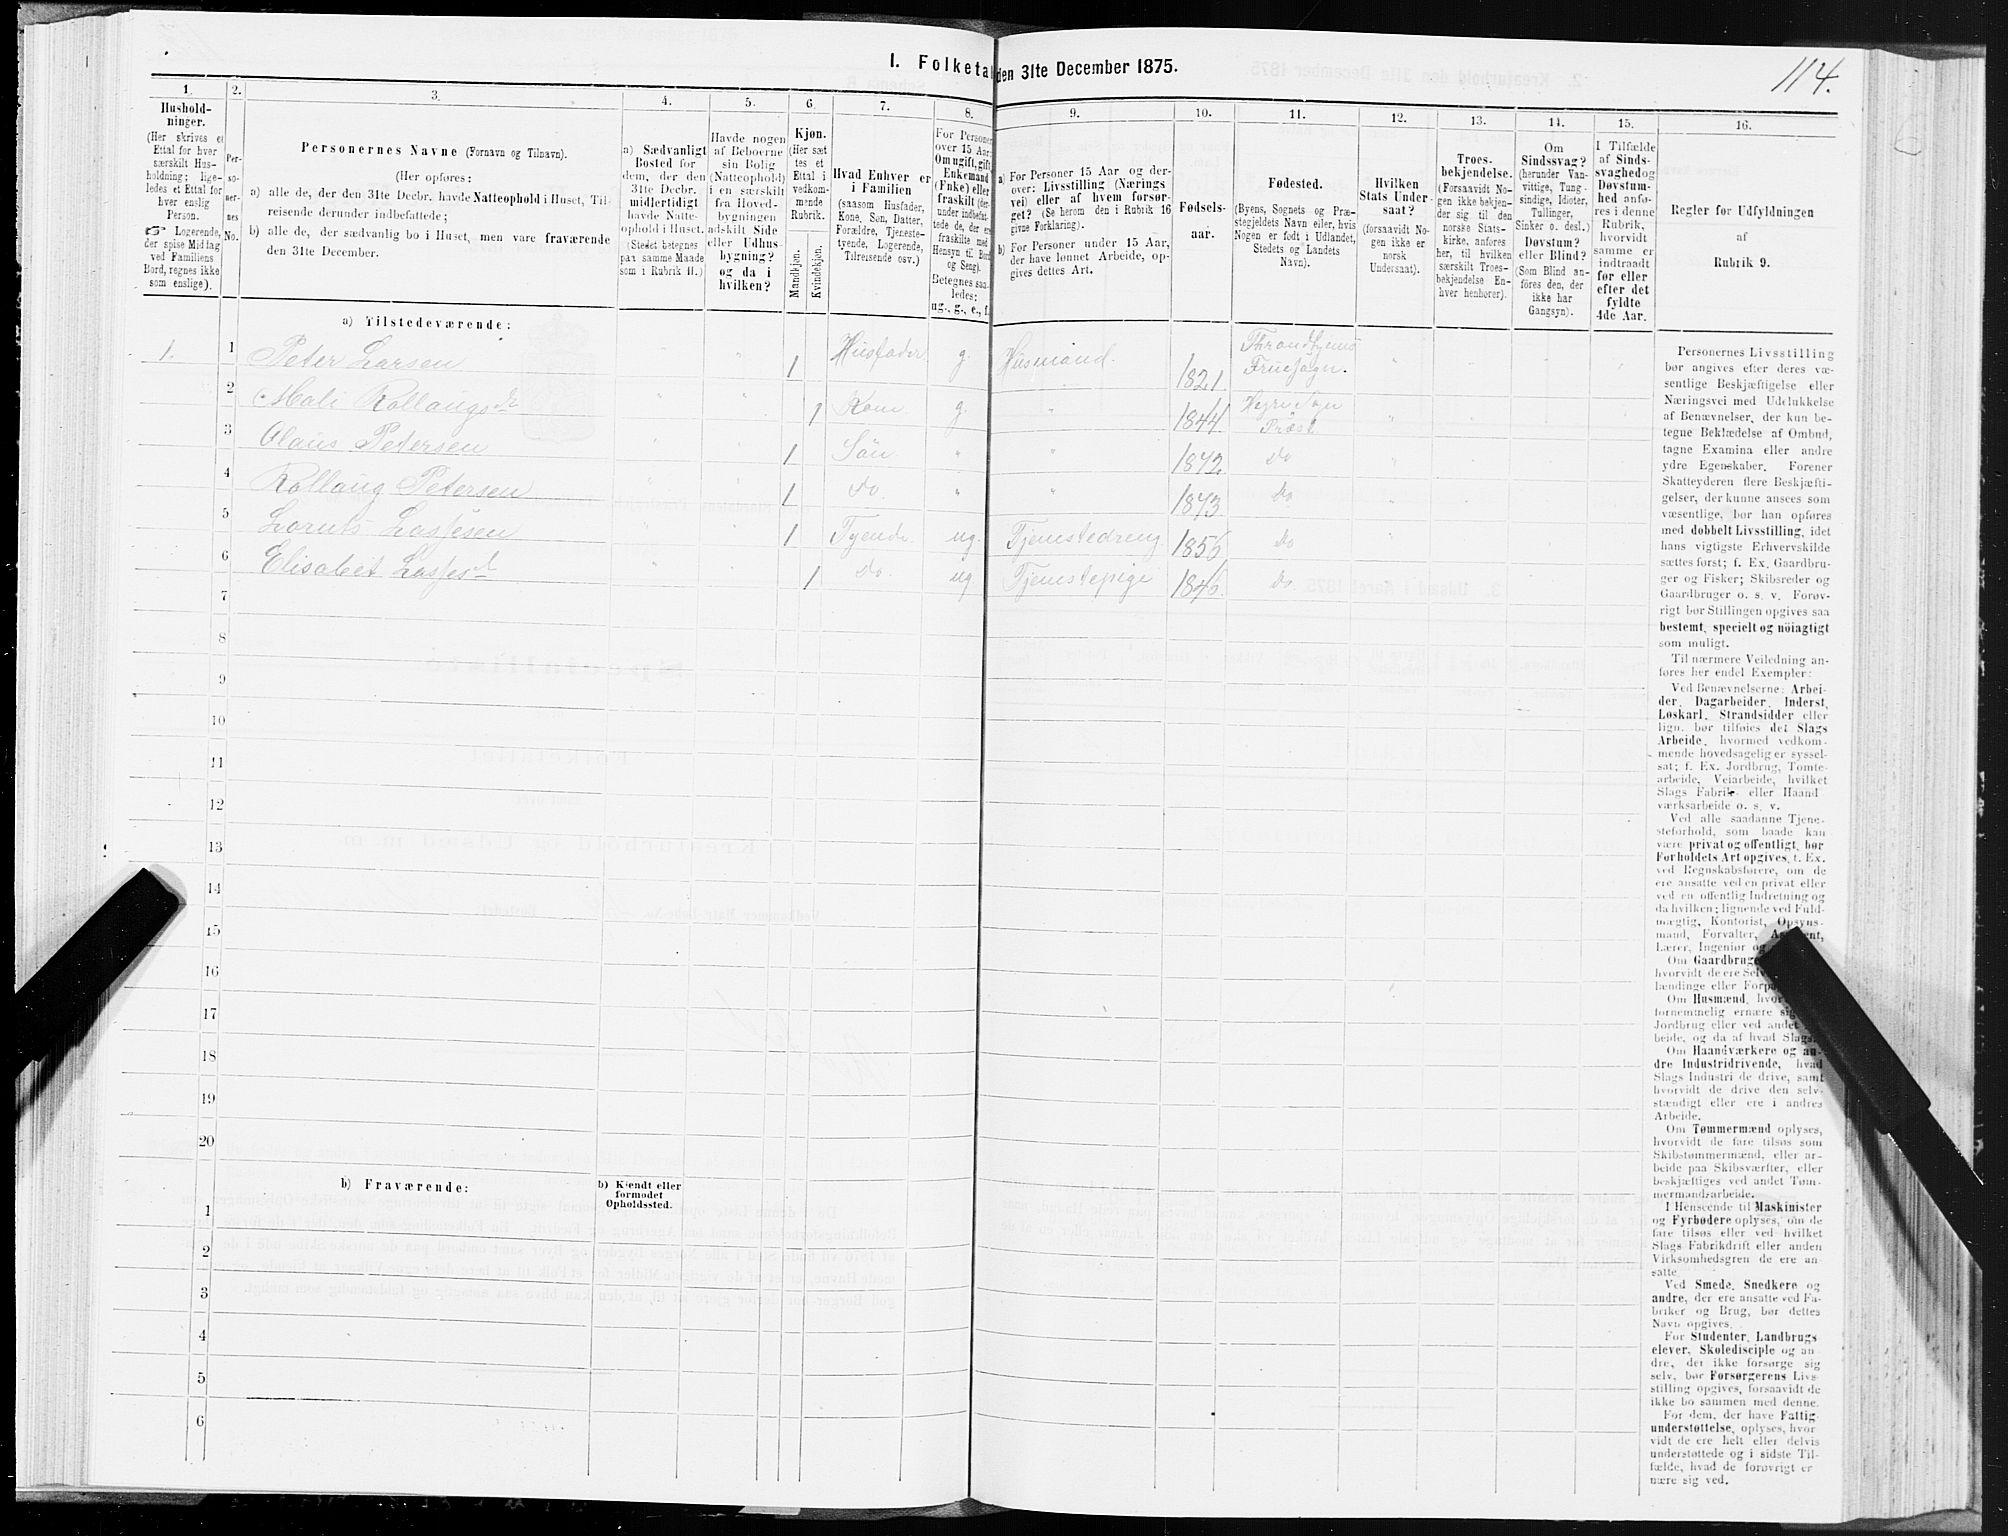 I. Folketal den 31te December 1875.
114.
1.
2.
3.
4.
5.
6.
7.
8.
9.
10.
11.
12.
13.
14.
15.
16.
Hushold-
ninger.
(Her skrives et
Ettal for hver
særskilt Hus-
holdning; lige-
ledes et Ettal for
hver enslig
Person.
☞ Logerende,
der spise Middag
ved Familiens
Bord, regnes ikke
som enslige).
Per-
so-
ner-
nes
No.
Personernes Navne (Fornavn og Tilnavn).
(Her opføres:
a) alle de, der den 31te Decbr. havde Natteophold i Huset, Til-
reisende derunder indbefattede;
b) alle de, der sædvanlig bo i Huset, men vare fraværende
den 31te December.
a) Sædvanligt
Bosted for
dem, der den
31te Decbr.
midlertidigt
havde Natte-
ophold i Huset.
(Stedet betegnes
paa samme Maade
som i Rubrik 11.)
Havde nogen
af Beboerne
sin Bolig
(Natteophold)
i en særskilt
fra Hoved-
bygningen
adskilt Side
eller Udhus-
bygning?
og da i
hvilken?
Kjøn.
(Her sæt-
tes et
Ettal i
vedkom-
mende
Rubrik.
Mandkjøn.
Kvindekjøn.
Hvad Enhver er
i Familien
(saasom Husfader,
Kone, Søn, Datter,
Forældre, Tjeneste-
tyende, Logerende,
Tilreisende osv.)
For Personer
over 15 Aar:
Om ugift, gift,
Enkemand
(Enke) eller
fraskilt (der-
under indbefat-
tede de, der ere
fraskilte med
Hensyn til Bord
og Seng).
Betegnes saa-
ledes:
ug-, g-, e-, f.
a) For Personer 15 Aar og der-
over: Livsstilling (Nærings-
vei) eller af hvem forsør-
get? (Se herom den i Rubrik 16
givne Forklaring).
b) For Personer under 15 Aar,
der have lønnet Arbeide, op-
gives dettes Art.
Fødsels-
aar.
Fødested.
(Byens, Sognets og Præ-
stegjeldets Navn eller, hvis
Nogen er født i Udlandet,
Stedets og Landets
Navn).
Hvilken
Stats Under-
saat?
(forsaavidt No-
gen ikke er
norsk
Undersaat).
Troes-
bekjendelse.
(Forsaavidt No-
gen ikke bekjen-
der sig til den
norske Stats-
kirke, anføres
her, til hvilken
særskilt Troes-
bekjendelse En-
hver henhører).
Om
Sindssvag?
(herunder Van-
vittige, Tung-
sindige, Idioter,
Tullinger,
Sinker o. desl.)
Døvstum?
eller Blind?
(Som Blind an-
føres den, der
ikke har
Gangsyn).
I Tilfælde
af Sinds-
svaghed og
Døvstum-
hed anfø-
res i denne
Rubrik,
hvorvidt
samme er
indtraadt
før eller
efter det
fyldte
4de Aar.
Regler før Udfyldningen
af
Rubrik 9.
a) Tilstedeværende:
1. 1 Peter Larsen " " 1 Husfader g. Husmand. 1821. Throndhjems Fruesogn. " " " "
2 Mali Rollaugsdr " " 1 Kone g. " 1844 Hegre Sogn Præst. " " "
3 Olaus Petersen " " 1 Søn. " " 1872. Do "
4 Rollaug Petersen " " 1 do. " " 1873 Do
5 Lornts Lassesen " " 1 Tyende. ug. Tjenstedreng 1856 Do
6 Elisabet Lassesd " " 1 do. ug. Tjenstepige 1846. Do.
7
8
9
10
11
12
13
14
15
16
17
18
19
20
b) Fraværende:
b) Kjendt eller
formodet
Opholdssted.
1
2
3
4
5
6
Personernes Livsstilling
bør angives efter deres væ-
sentlige Beskjæftigelse eller
Næringsvei med Udelukkelse
af Benævnelser, der kun be-
tegne Beklædelse af Ombud,
tagne Examina eller andre
ydre Egenskaber. Forener
Skatteyderen flere Beskjæfti-
gelser, der kunne ansees som
væsentlige, bør han opføres
med dobbelt Livsstilling, idet
hans vigtigste Erhvervskilde
sættes først; f. Ex. Gaardbru-
ger og Fisker; Skibsreder og
Gaardbruger o. s. v. Forøv-
rigt bør Stillingen opgives saa
bestemt, specielt og nöiagtigt
som muligt.
Til nærmere Veiledning an-
føres her endel Exempler:
Ved Benævnelserne: Arbei-
der, Dagarbeider, Inderst,
Løskarl, Strandsidder eller
lign. bør tilføies det Slags
Arbeide, hvormed vedkom-
mende hovedsagelig er syssel-
sat; f. Ex. Jordbrug, Tomte-
arbeide, Veiarbeide, hvilket
Slags Fabrik- eller Haand-
værksarbeide o. s. v.
Ved alle saadanne Tjene-
steforhold, som baade kan
være privat og offentligt, bør
Forholdets Art opgives, t. Ex.
ved Regnskabsførere, om de
ere ansatte ved en privat eller
ved en offentlig Indretning og
da hvilken; lignende ved Fuld-
mægtig, Kontorist, Opsyns-
mand, Forvalter,
Lærer, Ingeniør og
Om
hvorvidt de ere
lændinge eller
Om Husmænd,
fornemmelig ernære
Jordbrug eller ved andet
beide, og da af hvad Slags.
Om Haandværkere og an-
dre Industridrivende, hvad
Slags Industri de drive, samt
hvorvidt de drive den selv-
stændigt eller ere i andres
Arbeide.
Om Tømmermænd oplyses,
hvorvidt de fare tilsøs som
Skibstømmermænd, eller ar-
beide paa Skibsværfter, eller
beskjæftiges ved andet Tøm-
mermandsarbeide.
I Henseende til Maskinister
og Fyrbødere oplyses, om de
fare tilsøs eller ved hvilket
Slags Fabrikdrift eller anden
Virksomhedsgren de ere an-
satte.
Ved Smede, Snedkere og
andre, der ere ansatte ved Fa-
briker og Brug, bør dettes
Navn opgives.
For Studenter, Landbrugs-
elever, Skoledisciple og an-
dre, der ikke forsørge sig
selv, bør Forsørgerens Livs-
stilling opgives, forsaavidt de
ikke bo sammen med denne.
For dem, der have Fattig-
understøttelse, oplyses, hvor-
vidt de ere helt eller delvis
understøttede og i sidste Til-
fælde, hvad de forøvrigt er-
nære sig ved.